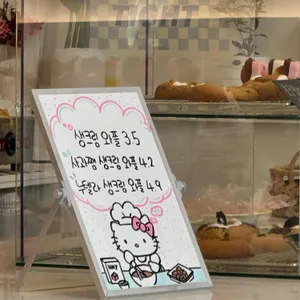 TIGHT
생크림 와플 3.5
사과쨈 생크림 와플 4.2
누텔라 생크림 와플 4.9